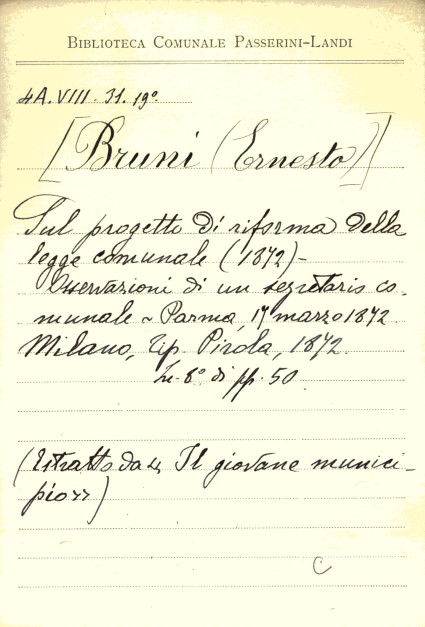 Biblioteca Comunale Passerini-Landi
4A.VIII. 31. 19º
[Bruni (Ernesto)]
Sul progetto di riforma della
legge comunale (1872) -
Osservazioni di un segretario co-
munale ~ Parma, 17 marzo 1872
Milano, Tip. Pirola, 1872.
In-8º di pp. 50
(Estratto da « Il giovane munici-
pio »)
C